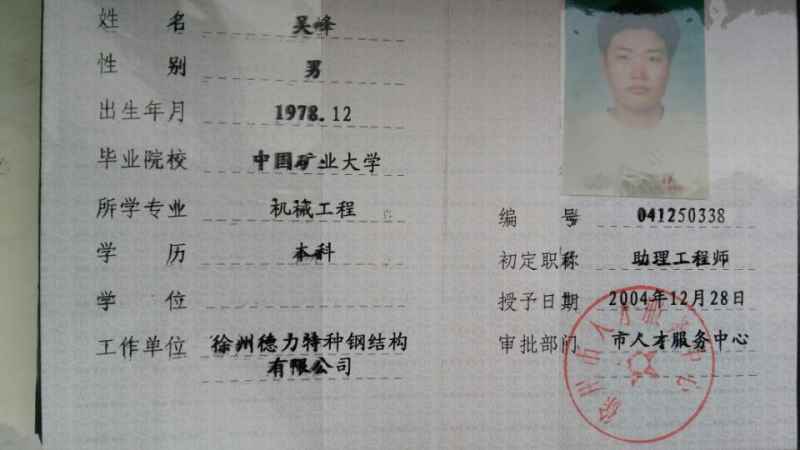 姓 名 吴峰
性 别 男
出生年月 1978.12
毕业院校 中国矿业大学
所学专业 机械工程
学 历 本科
学 位
工作单位 徐州德力特种钢结构
有限公司
编 号 041250338
初定职称 助理工程师
授予日期 2004年12月28日
审批部门 市人才服务中心
徐州市人才服务中心